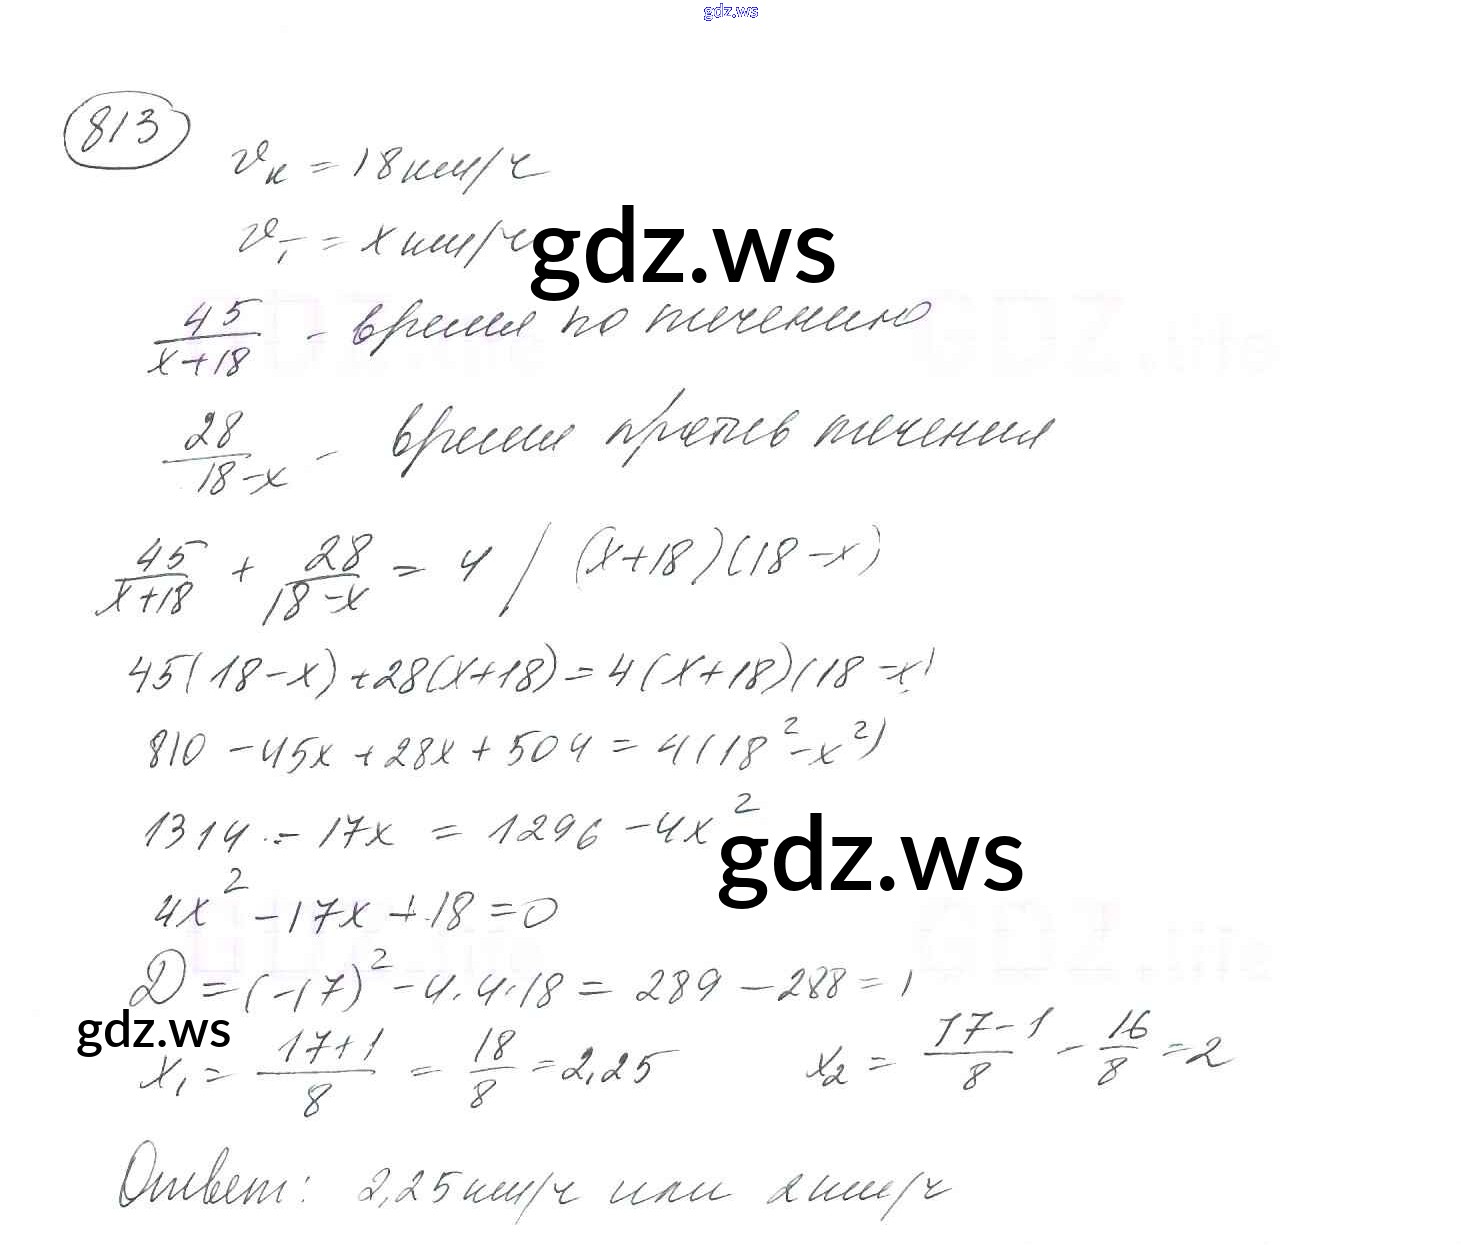 gdz.ws
813
vк = 18 км/ч
vт = x км/ч
gdz.ws
45/(x+18) - время по течению
28/(18-x) - время против течения
45/(x+18) + 28/(18-x) = 4 / (x+18)(18-x)
45(18-x)+28(x+18)=4(x+18)(18-x)
810-45x+28x+504=4(18²-x²)
1314-17x = 1296-4x²
gdz.ws
4x²-17x+18=0
D=(-17)²-4·4·18=289-288=1
gdz.ws
x₁= (17+1)/8 = 18/8 =2,25 x₂= (17-1)/8 - 16/8 =2
Ответ: 2,25 км/ч или 2 км/ч